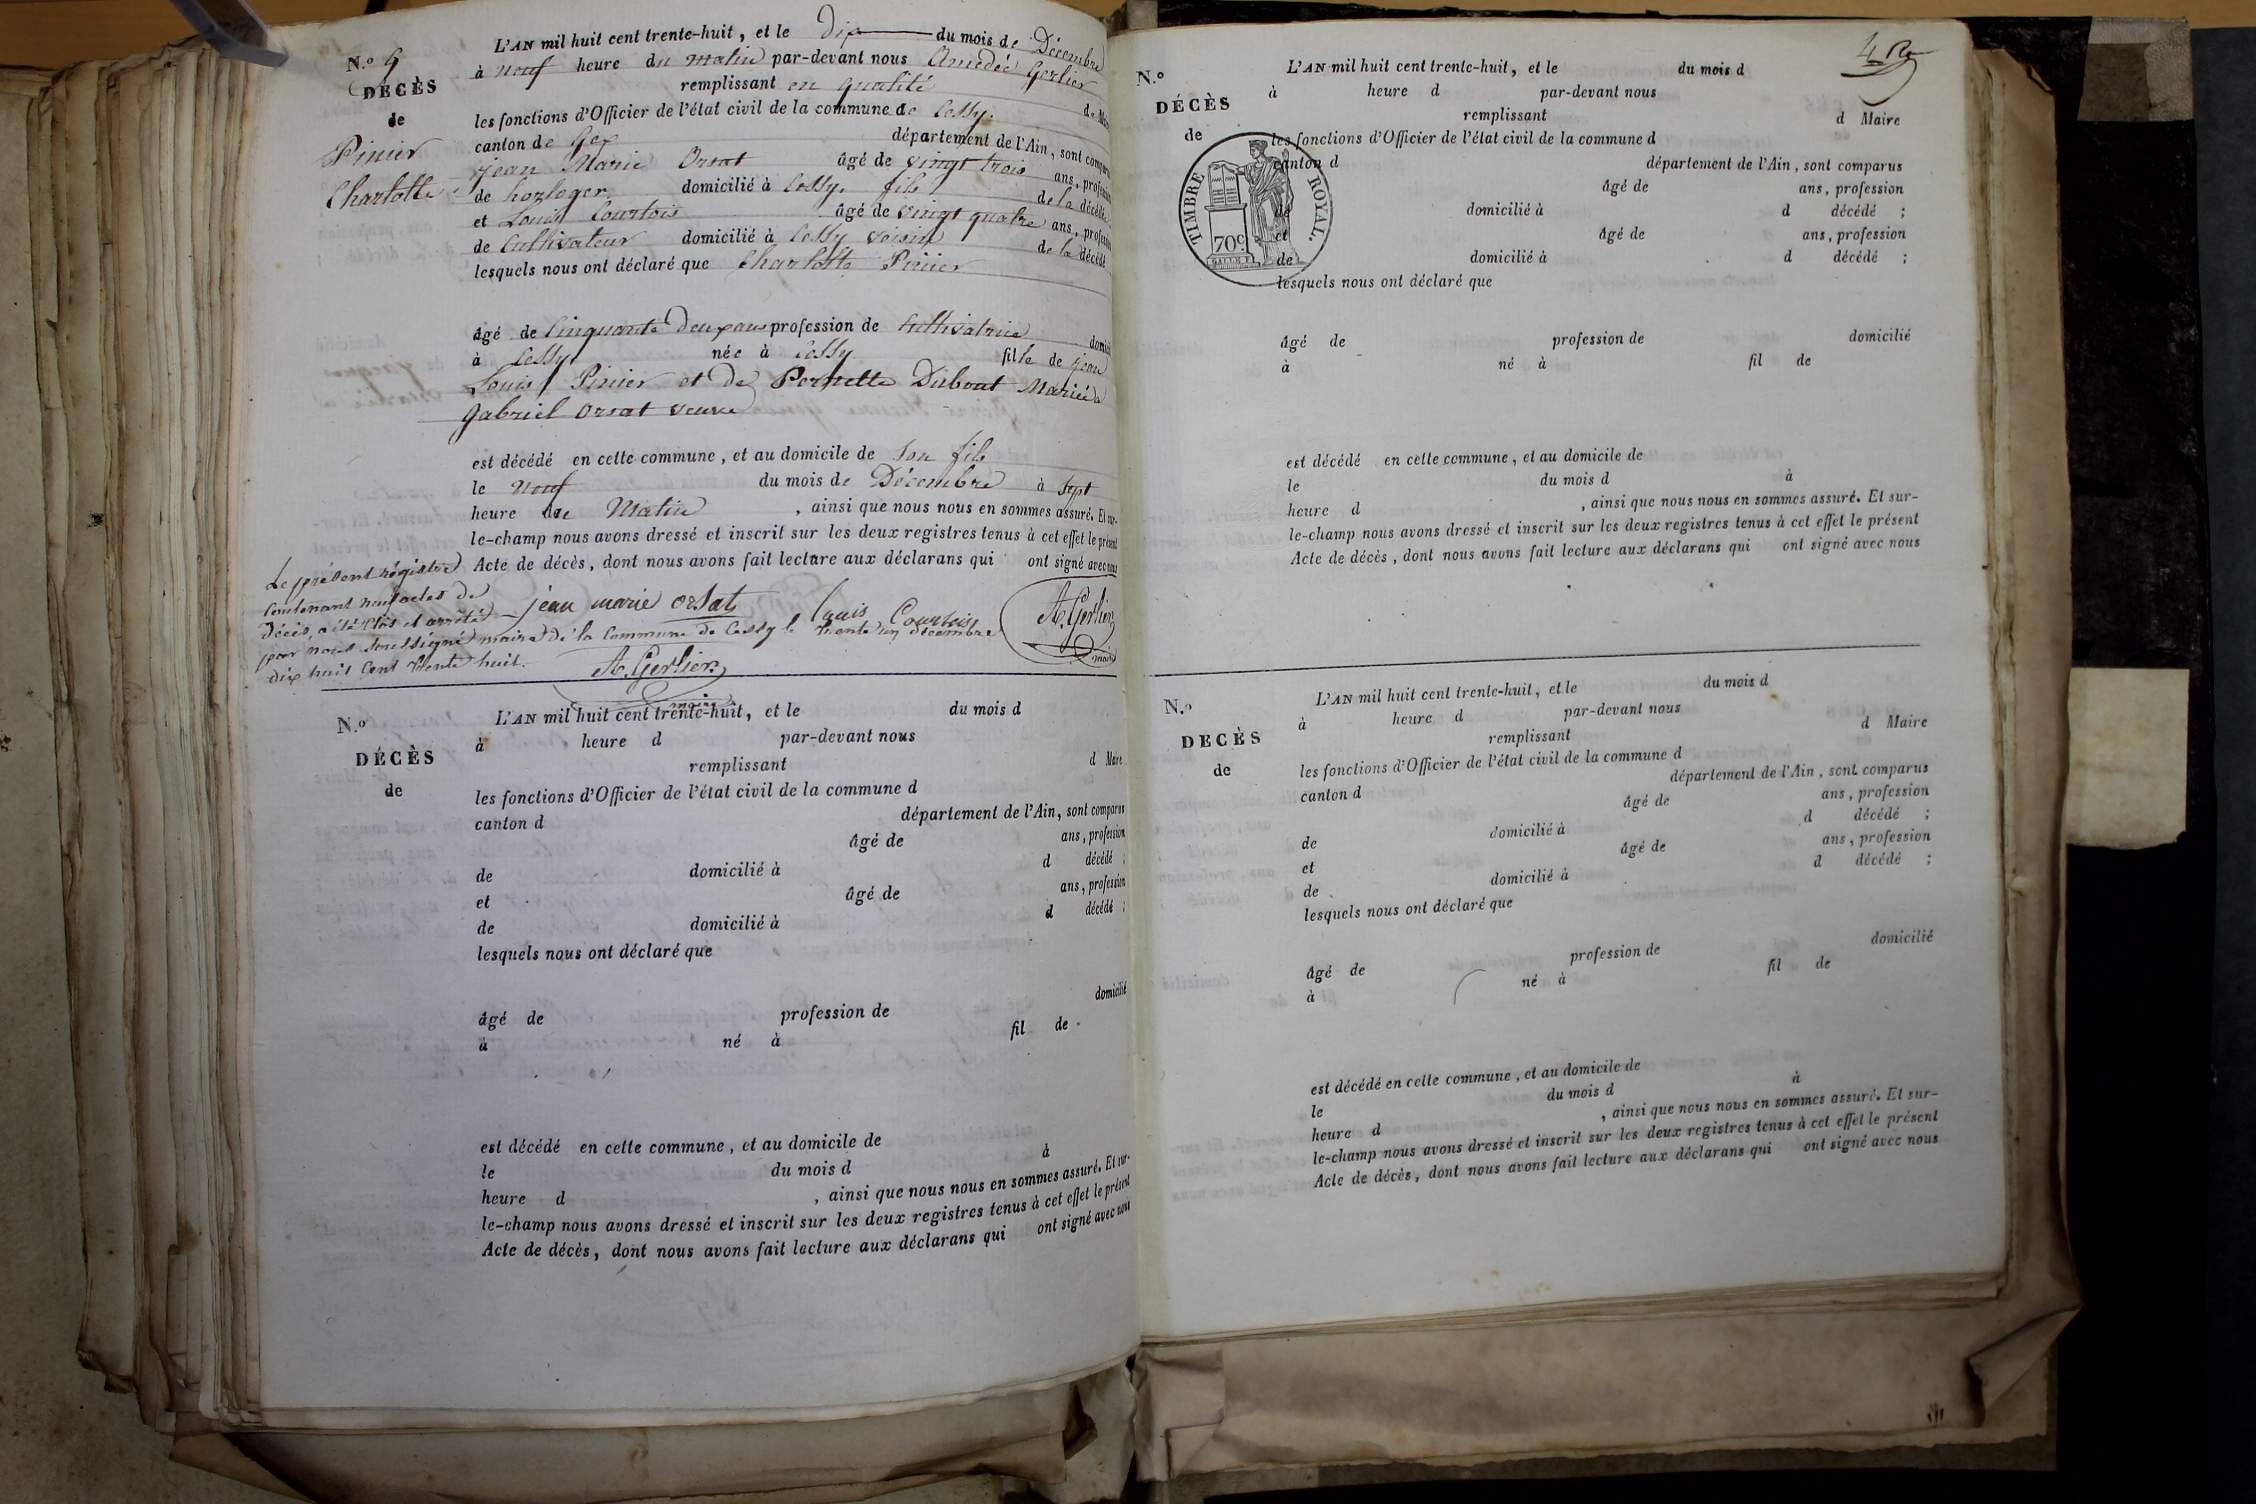 N.º 9
DÉCÈS
de
Pinier
Charlotte
L'AN mil huit cent trente-huit, et le Dix du mois de Décembre
à neuf heure du matin par-devant nous Amedée Gerlier
remplissant en qualité d. Maire
les fonctions d'Officier de l'état civil de la commune de Cessy.
canton de Gex département de l'Ain, sont comparus
jean Marie Orsat âgé de vingt trois ans, profession
de horloger domicilié à Cessy. fils de la décédée
et Louis Courtois âgé de vingt quatre ans, profession
de Cultivateur domicilié à Cessy voisin de la décédé
lesquels nous ont déclaré que Charlotte Pinier
âgé de Cinquante Deux ans profession de Cultivatrice domicilié
à Cessy née à Cessy fille de jean
Louis Pinier et de Pernette Dubout Mariée à
gabriel orsat veuve
est décédé en cette commune, et au domicile de son fils
le neuf du mois de Décembre à sept
heure du Matin, ainsi que nous nous en sommes assuré. Et sur-
le-champ nous avons dressé et inscrit sur les deux registres tenus à cet effet le présent
Acte de décès, dont nous avons fait lecture aux déclarans qui ont signé avec nous
jean marie orsat Louis Courtois A. Gerlier
maire
Le présent régistre
contenant neuf actes de
Décès, a été Clos et arrêté
par nous soussigné maire de la Commune de Cessy le trente un décembre
dix huit Cent trente huit.
A. Gerlier
maire
N.º
DÉCÈS
de
L'AN mil huit cent trente-huit, et le du mois d
à heure d par-devant nous
remplissant d Maire
les fonctions d'Officier de l'état civil de la commune d
canton d département de l'Ain, sont comparus
âgé de ans, profession
de domicilié à d décédé ;
et âgé de ans, profession
de domicilié à d décédé ;
lesquels nous ont déclaré que
âgé de profession de domicilié
à né à fil de
est décédé en cette commune, et au domicile de
le du mois d à
heure d , ainsi que nous nous en sommes assuré. Et sur-
le-champ nous avons dressé et inscrit sur les deux registres tenus à cet effet le présent
Acte de décès, dont nous avons fait lecture aux déclarans qui ont signé avec nous
N.º
DÉCÈS
de
TIMBRE ROYAL.
70c.
L'AN mil huit cent trente-huit, et le du mois d
à heure d par-devant nous
remplissant d Maire
les fonctions d'Officier de l'état civil de la commune d
canton d département de l'Ain, sont comparus
âgé de ans, profession
de domicilié à d décédé ;
et âgé de ans, profession
de domicilié à d décédé ;
lesquels nous ont déclaré que
âgé de profession de domicilié
à né à fil de
est décédé en cette commune, et au domicile de
le du mois d à
heure d , ainsi que nous nous en sommes assuré. Et sur-
le-champ nous avons dressé et inscrit sur les deux registres tenus à cet effet le présent
Acte de décès, dont nous avons fait lecture aux déclarans qui ont signé avec nous
N.º
DECÈS
de
L'AN mil huit cent trente-huit, et le du mois d
à heure d par-devant nous
remplissant d Maire
les fonctions d'Officier de l'état civil de la commune d
canton d département de l'Ain, sont comparus
âgé de ans, profession
de domicilié à d décédé ;
et âgé de ans, profession
de domicilié à d décédé ;
lesquels nous ont déclaré que
âgé de profession de domicilié
à né à fil de
est décédé en cette commune, et au domicile de
le du mois d à
heure d , ainsi que nous nous en sommes assuré. Et sur-
le-champ nous avons dressé et inscrit sur les deux registres tenus à cet effet le présent
Acte de décès, dont nous avons fait lecture aux déclarans qui ont signé avec nous